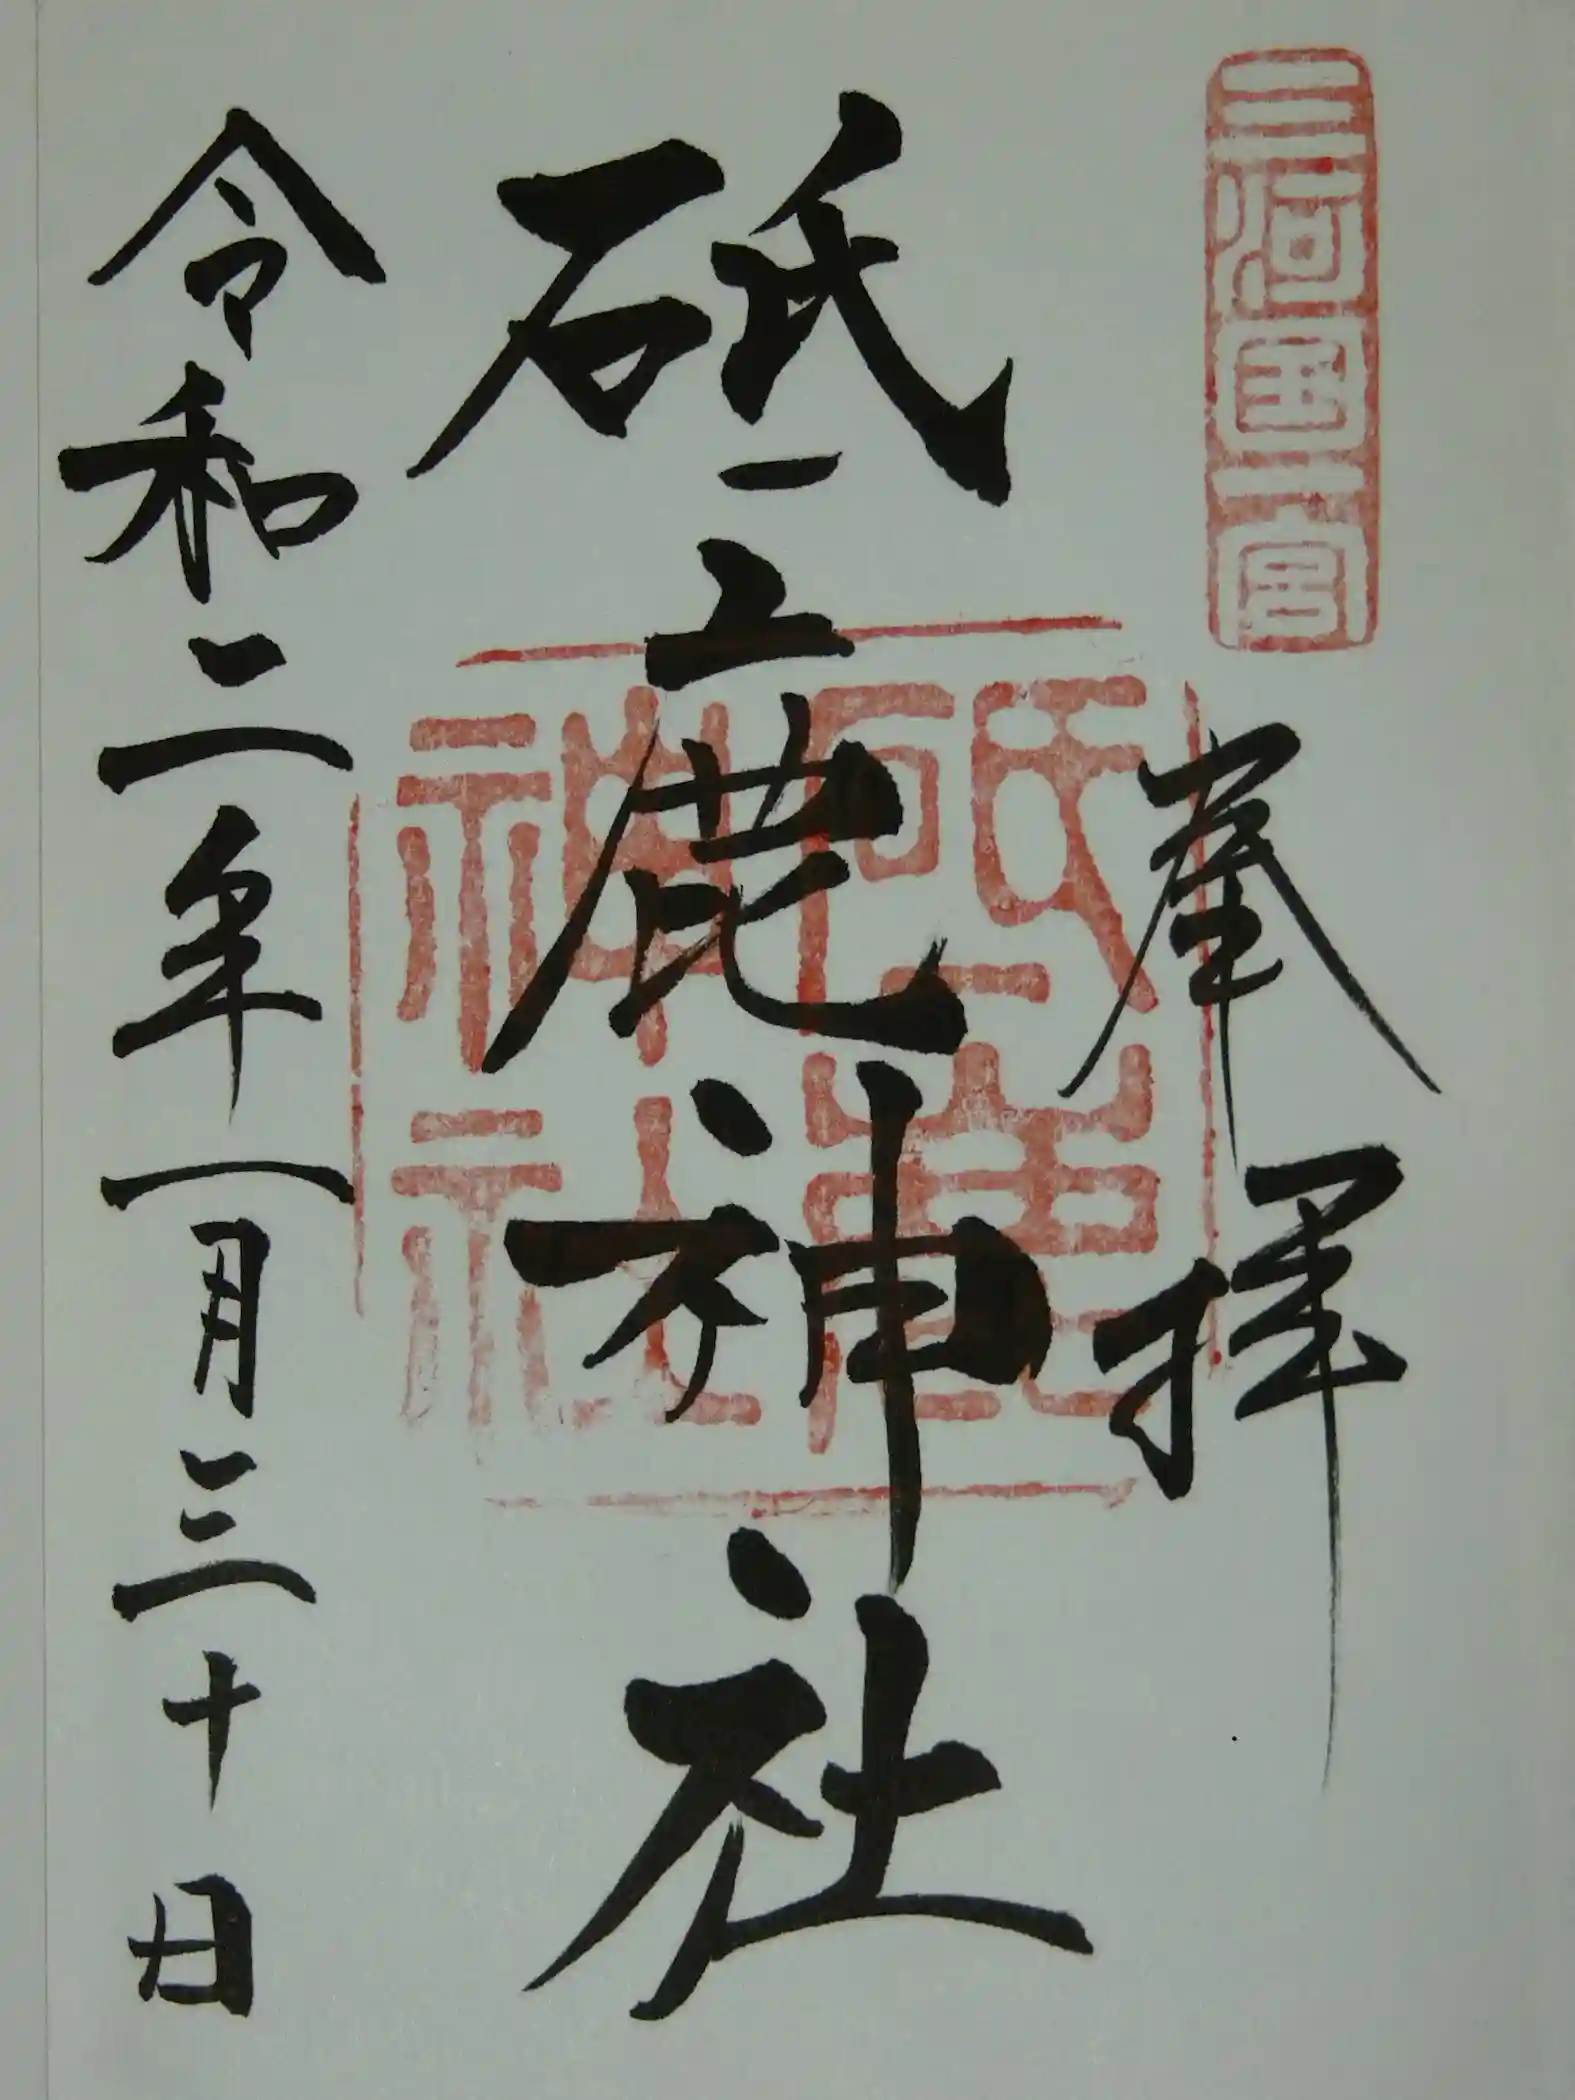 三河国一宮
奉拝
砥鹿神社
砥鹿神社
令和二年一月三十日